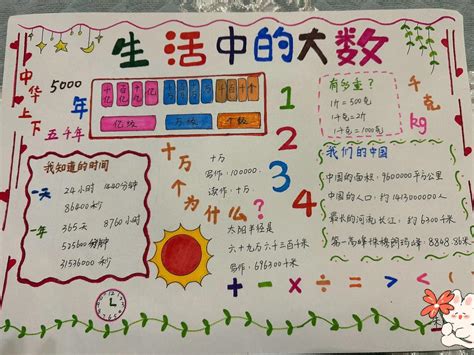 生活中的大数
中华上下
5000年
五千年
千百十亿千百十万千百十个
亿级 万级 个级
1
2
3
4
有多重?
1斤=500克
1千克=2斤
1千克=1000克
千克
kg
我知道的时间
一天 24小时 1440分钟
86400秒
一年 365天 8760小时
525600分钟
31536000秒
十万个为什么?
十万
写作:100000.
读作:十万.
太阳半径是
六十九万六千三百千米
写作:696300千米
我们的中国
中国的面积:9600000平方公里
中国的人口:约1413000000人
最长的河流长江:约6300千米
第一高峰珠穆朗玛峰:8848.86米
+ - × ÷ = > <